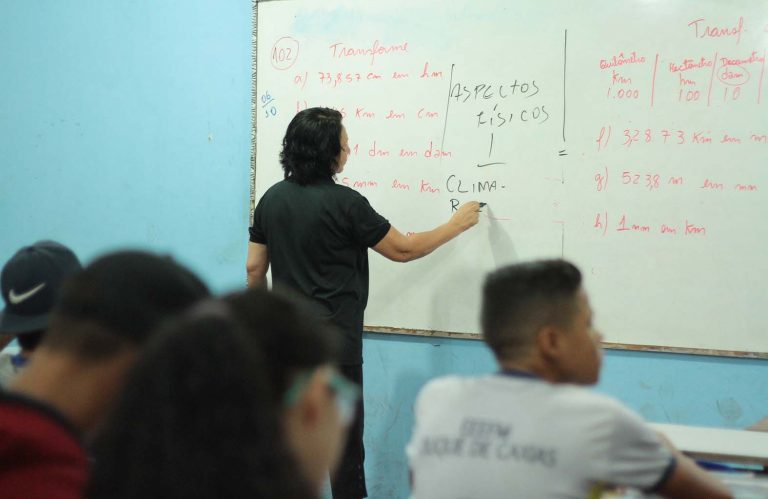 102 Transforme
a) 73,857 cm em hm
km em cm
1 dm em dam
mm em km
06
10
ASPECTOS
FÍSICOS
CLIMA-
R
=
Transf.
Quilômetro | Hectômetro | Decametro
km | hm | dam
1.000 | 100 | 10
f) 3,2873 km em m
g) 523,8 m em mm
h) 1 mm em km
EEEFM
DUQUE DE CAXIAS